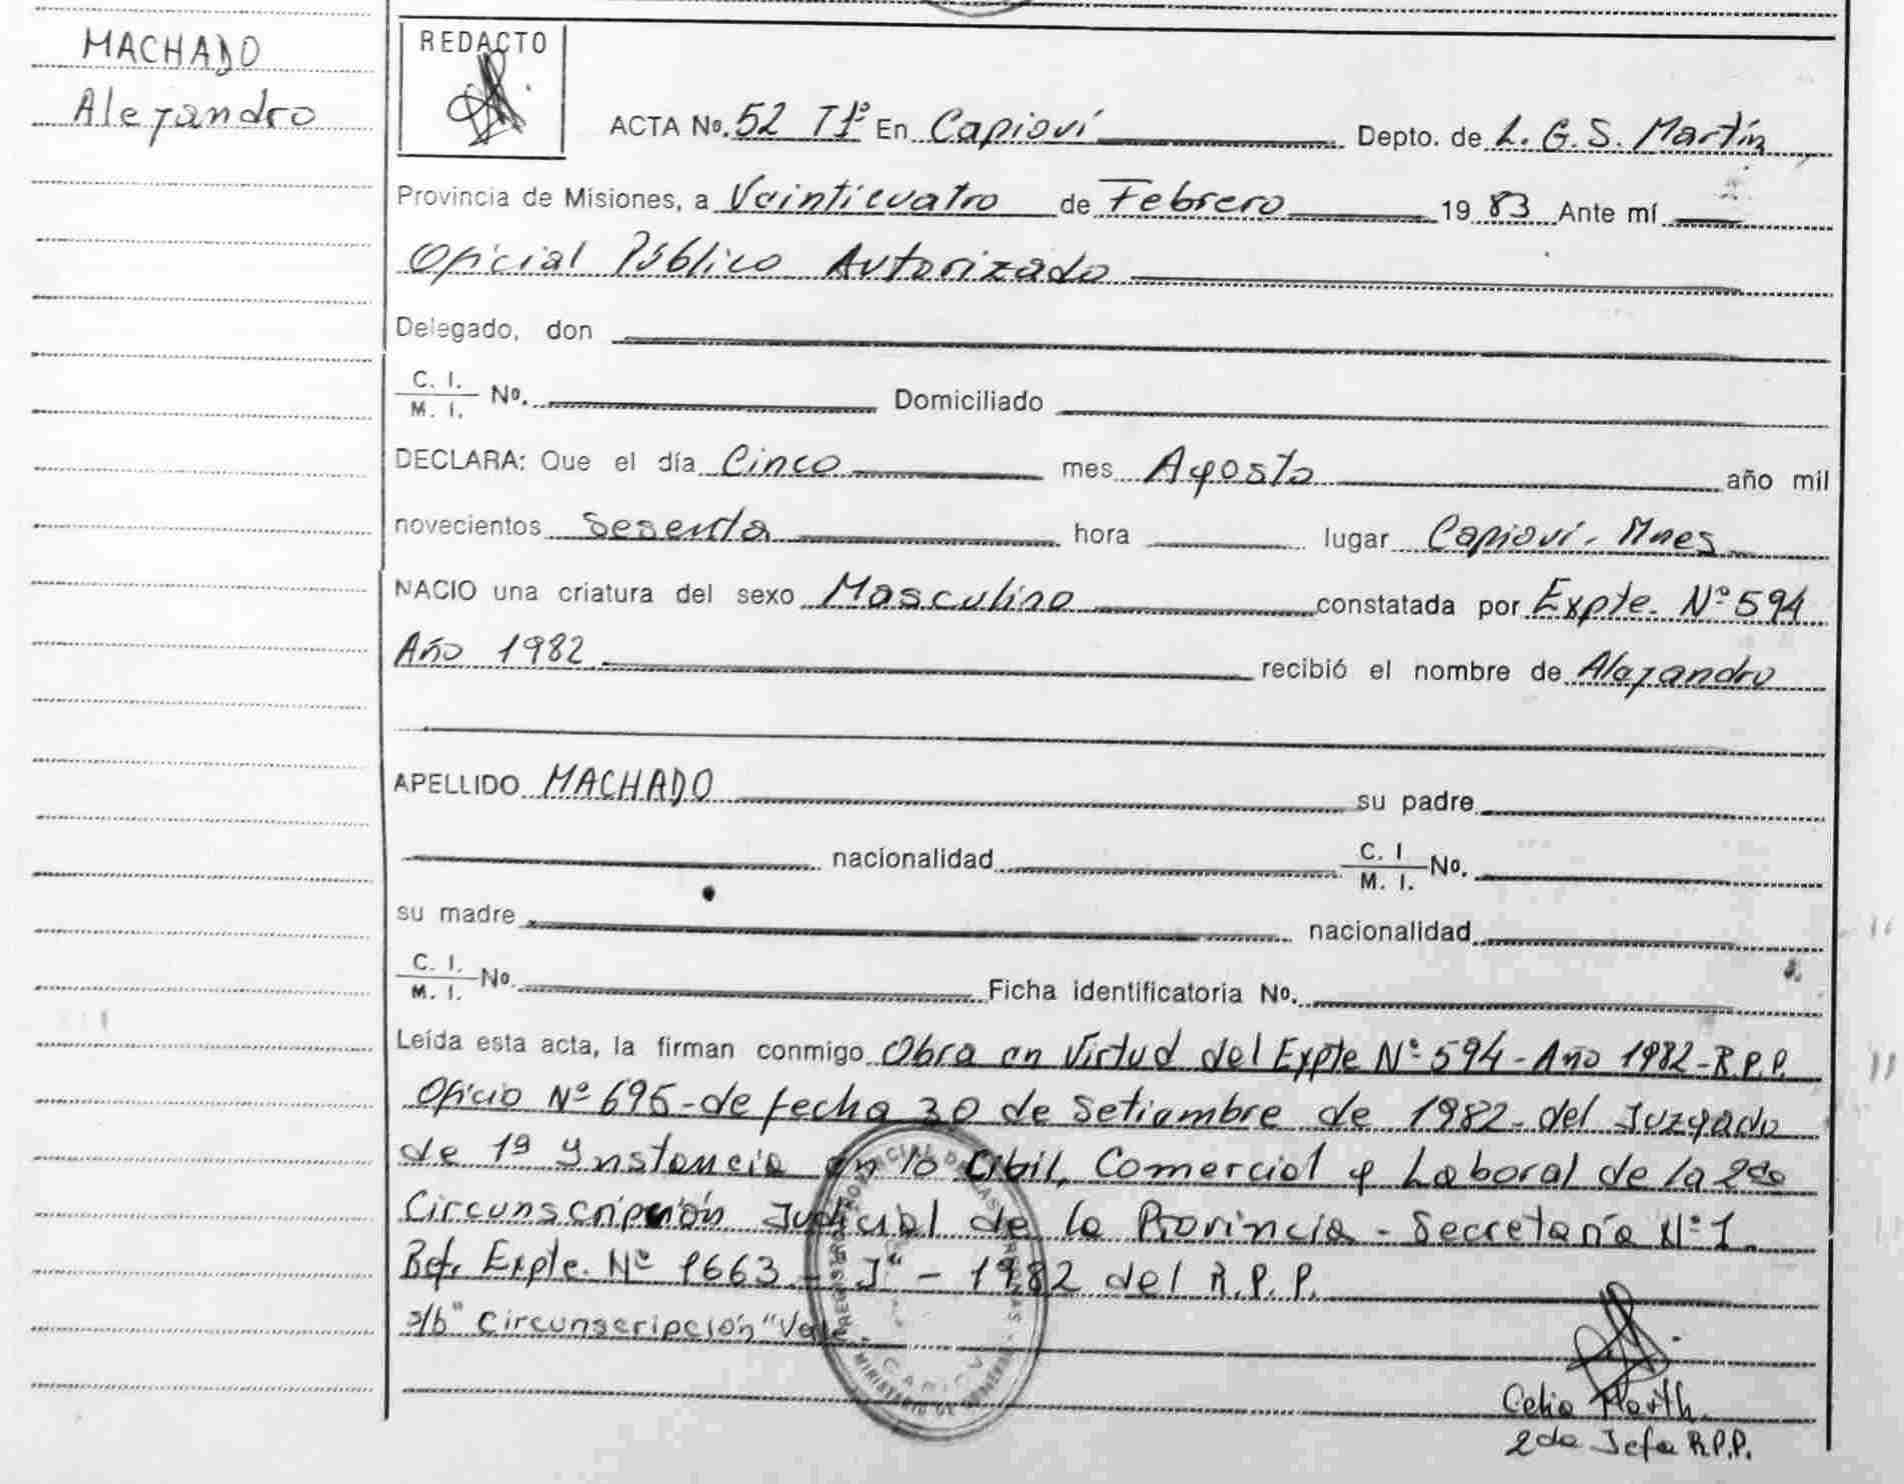 MACHADO
Alejandro
REDACTO
ACTA No. 52 Tº1º En Capioví Depto. de L. G. S. Martín
Provincia de Misiones, a Veinticuatro de Febrero 19 83 Ante mí
Oficial Público Autorizado
Delegado, don
C. I.
M. I. No. Domiciliado
DECLARA: Que el día Cinco mes Agosto año mil
novecientos Sesenta hora lugar Capioví - Mnes
NACIO una criatura del sexo Masculino constatada por Expte. Nº 594
Año 1982 recibió el nombre de Alejandro
APELLIDO MACHADO su padre
nacionalidad C. I
M. I. No.
su madre nacionalidad
C. I.
M. I. No. Ficha identificatoria No.
Leída esta acta, la firman conmigo Obra en Virtud del Expte Nº 594 - Año 1982 - R.P.P.
Oficio Nº 695 - de fecha 30 de Setiembre de 1982 - del Juzgado
de 1ª Instancia en lo Cibil, Comercial y Laboral de la 2da
Circunscripción Judicial de la Provincia - Secretaría Nº 1.
Ref. Expte. Nº 1663 - "J" - 1982 del R.P.P.
s/b "Circunscripción" Vale.
REGISTRO PROVINCIAL DE LAS PERSONAS
MINISTERIO DE GOBIERNO
CAPIOVI
Celia Marth.
2da Jefa R.P.P.